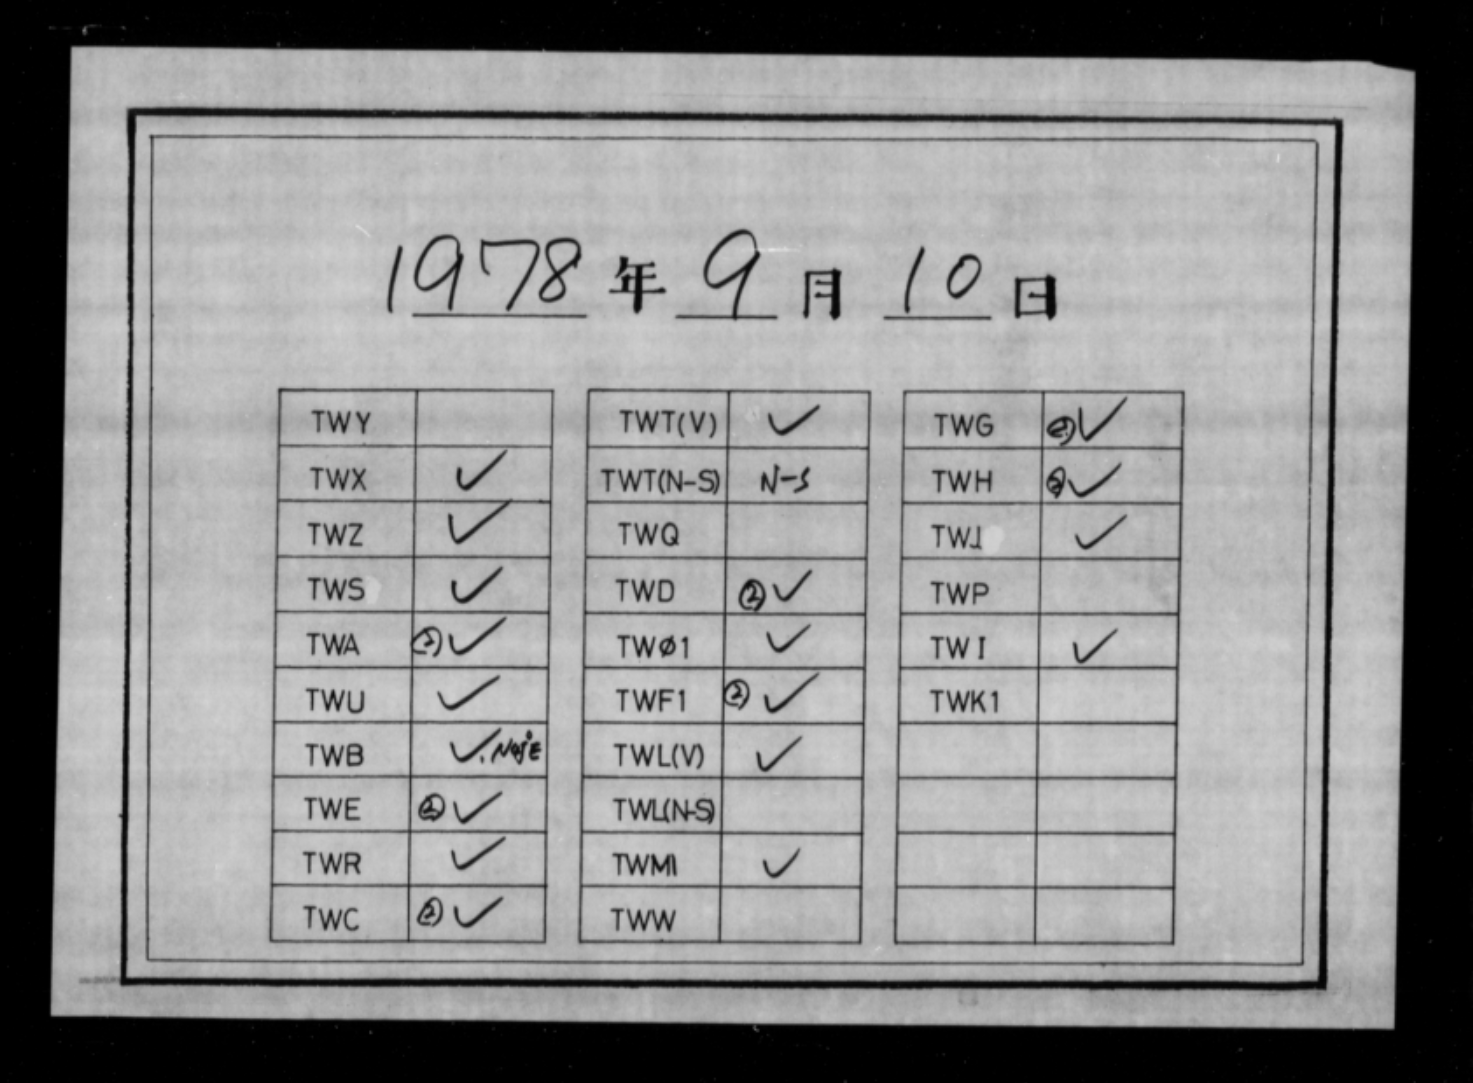 1978年 9月 10日
TWY
TWX ✓
TWZ ✓
TWS ✓
TWA ② ✓
TWU ✓
TWB ✓.
TWE ② ✓
TWR ✓
TWC ② ✓
TWT(V) ✓
TWT(N-S) N-S
TWQ
TWD ② ✓
TWØ1 ✓
TWF1 ② ✓
TWL(V) ✓
TWL(N-S)
TWM1 ✓
TWW
TWG ② ✓
TWH ② ✓
TWJ ✓
TWP
TWI ✓
TWK1